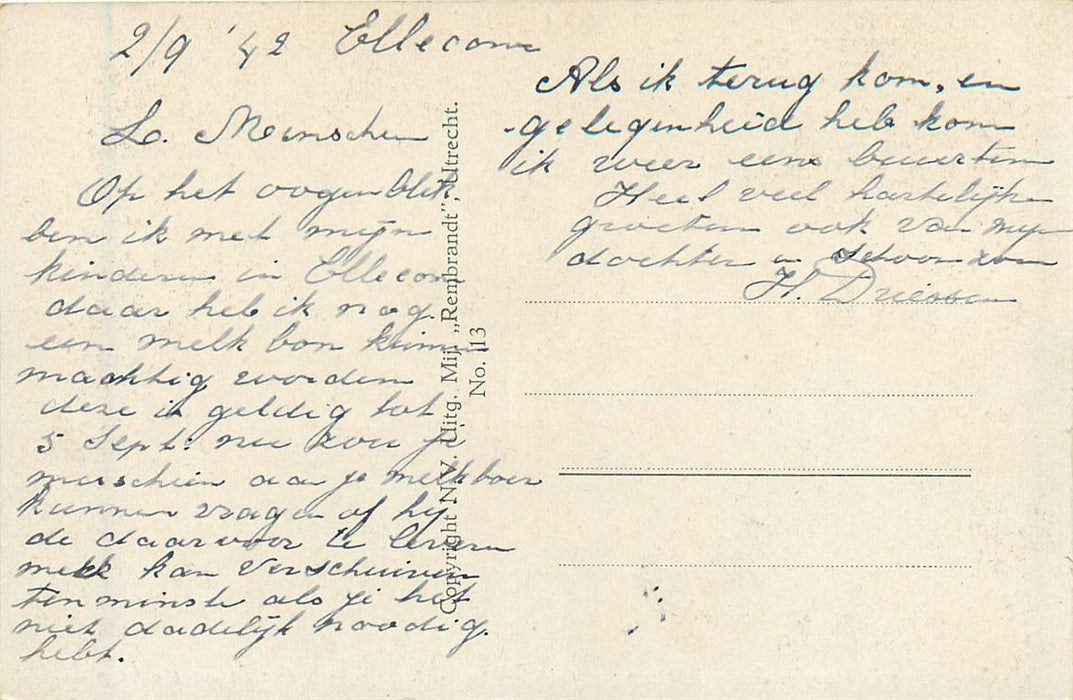 2/9 '42 Ellecom
L. Menschen
Op het oogenblik
ben ik met mijn
kinderen in Ellecom
daar heb ik nog
een melk bon kunnen
machtig worden
deze is geldig tot
5 Sept. nu zou je
misschien aan je melkboer
kunnen vragen of hij
de daarvoor te leveren
melk kan verschuiven
tenminste als je het
niet dadelijk noodig
hebt.
Als ik terug kom, en
gelegenheid heb kom
ik weer eens buurten
Heel veel hartelijke
groeten ook van mijn
dochter en schoonzoon
H. Driessen
Copyright N.V. Uitg. Mij. „Rembrandt”, Utrecht.
No. 113